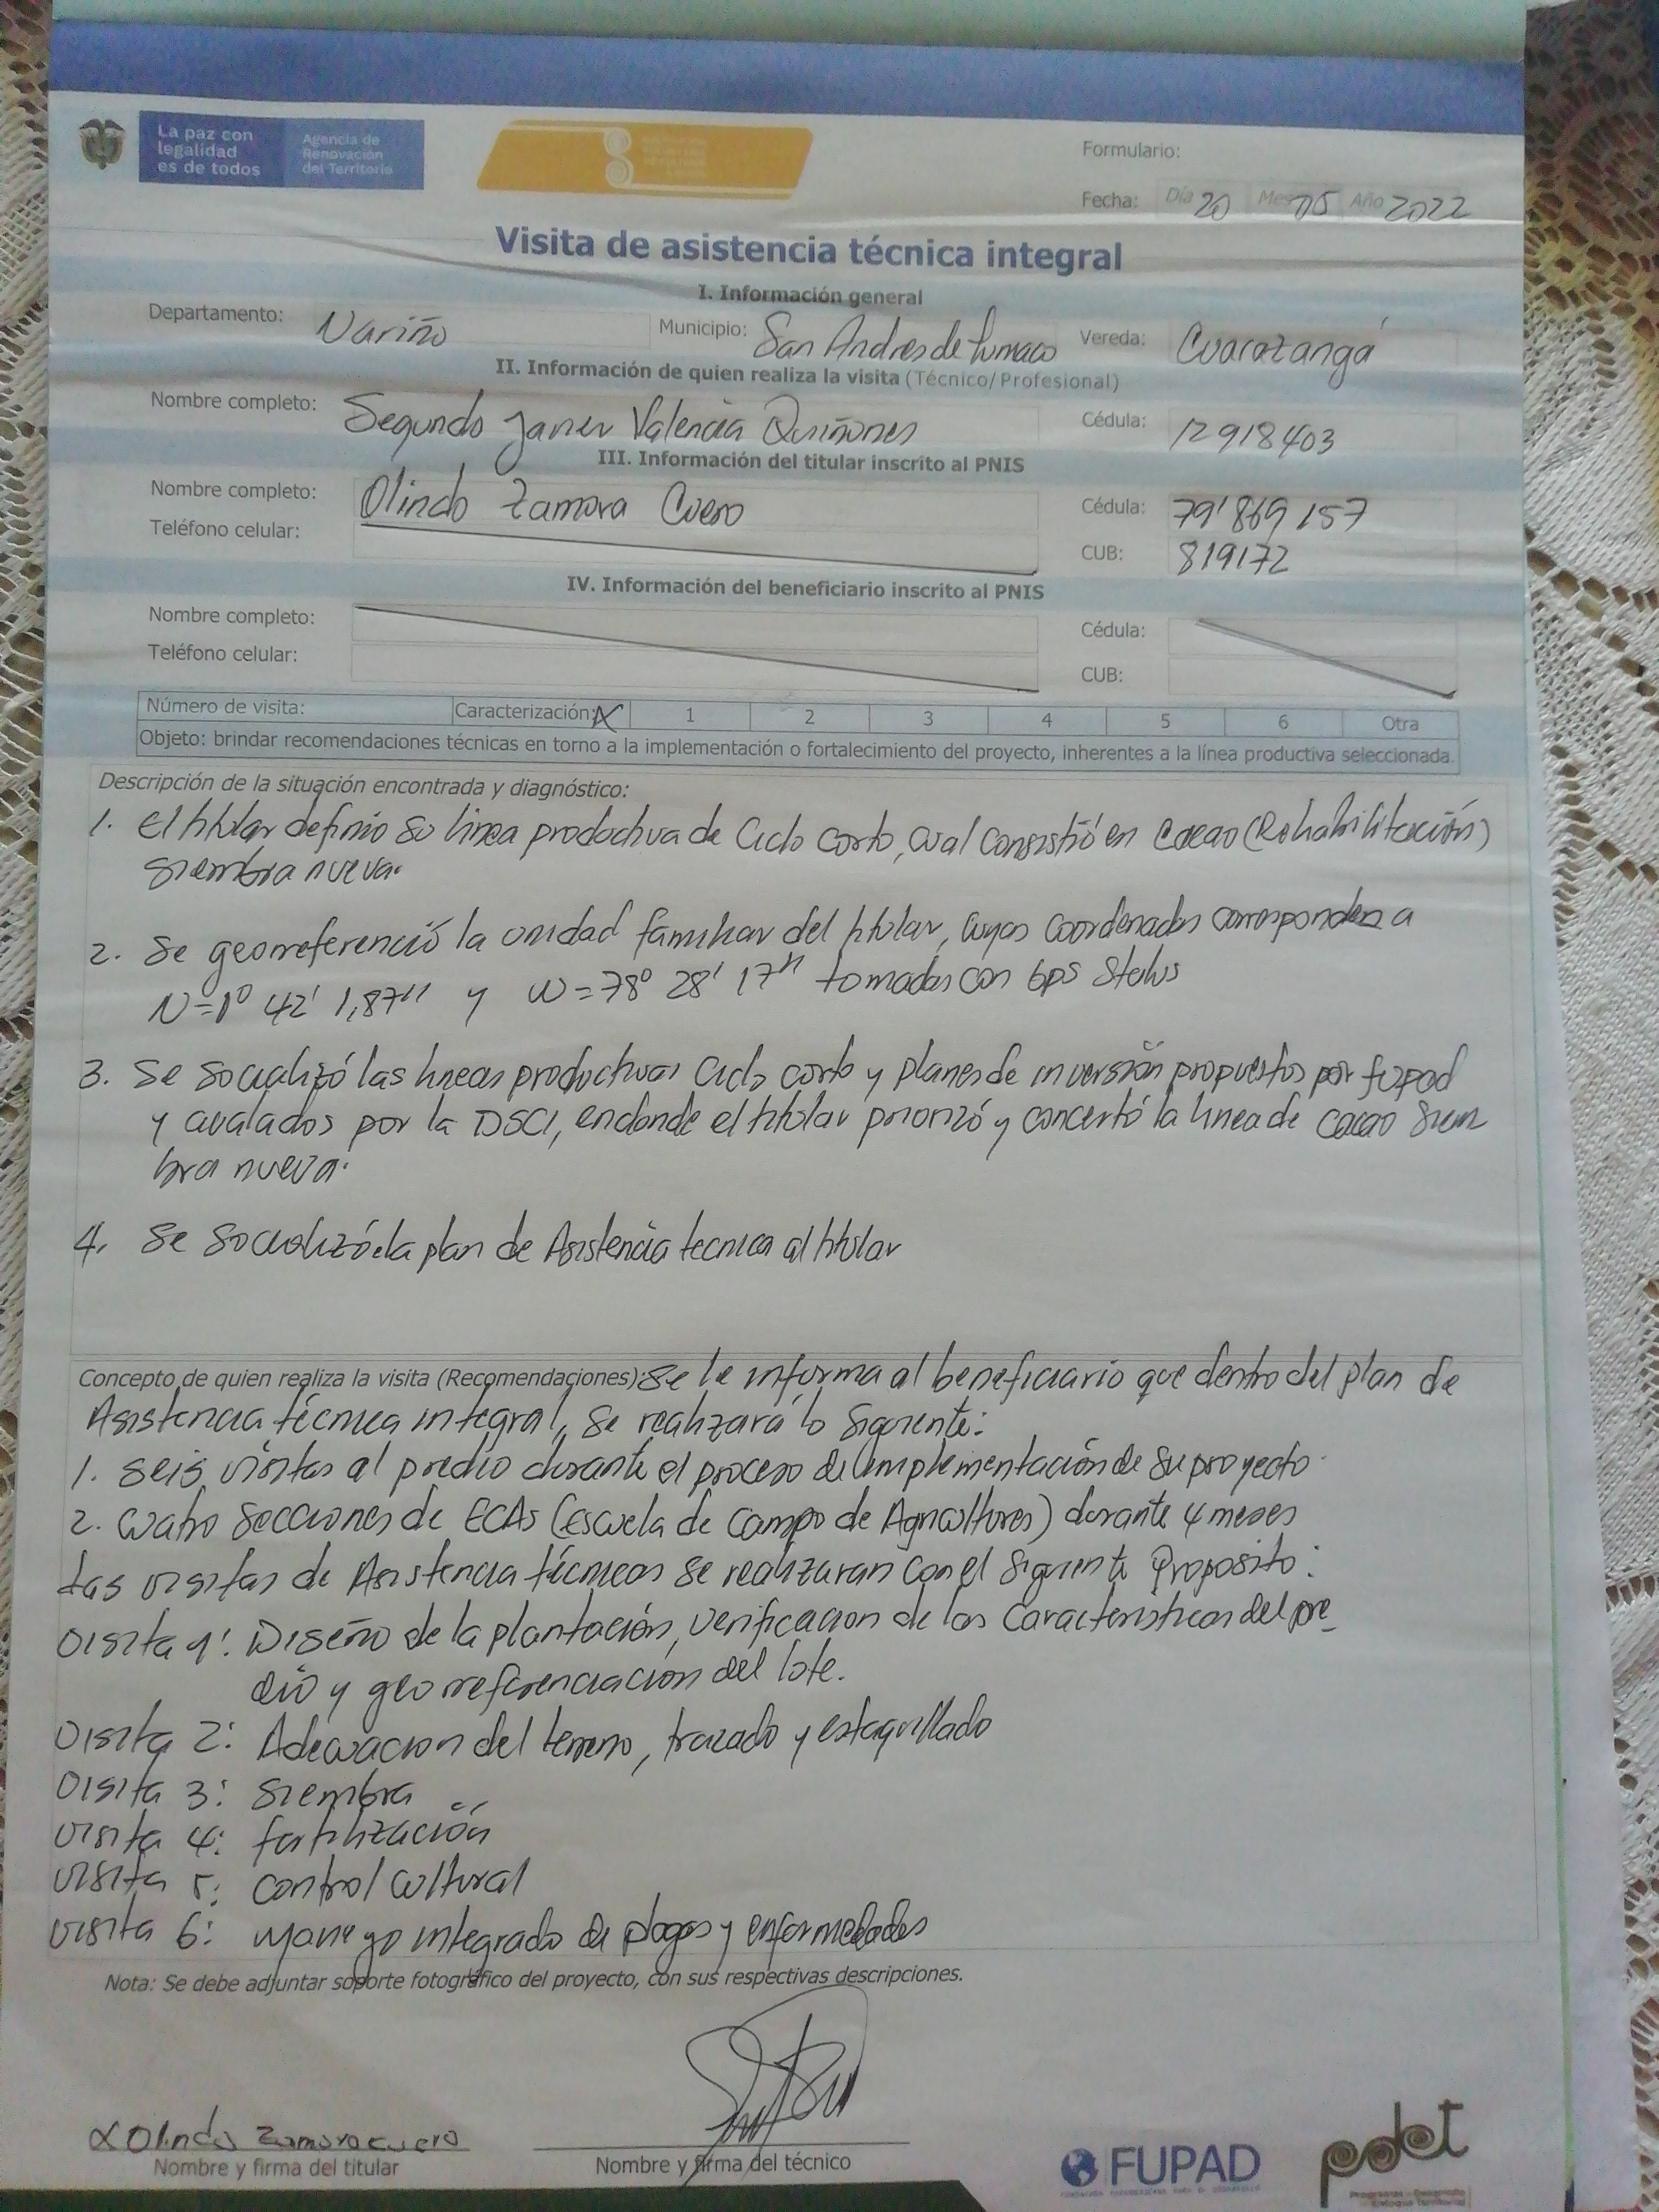 La paz con
legalidad
es de todos
Agencia de
Renovación
del Territorio
Formulario:
Fecha: Día 20 Mes 05 Año 2022
Visita de asistencia técnica integral
I. Información general
Departamento: Nariño Municipio: San Andres de Tumaco Vereda: Cuarazangá
II. Información de quien realiza la visita (Técnico/Profesional)
Nombre completo: Segundo Javier Valencia Quiñones Cédula: 12918403
III. Información del titular inscrito al PNIS
Nombre completo: Olindo Zamora Cuero Cédula: 79'869157
Teléfono celular: CUB: 819172
IV. Información del beneficiario inscrito al PNIS
Nombre completo: Cédula:
Teléfono celular: CUB:
Número de visita: Caracterización: X 1 2 3 4 5 6 Otra
Objeto: brindar recomendaciones técnicas en torno a la implementación o fortalecimiento del proyecto, inherentes a la línea productiva seleccionada.
Descripción de la situación encontrada y diagnóstico:
1. El titular definio su linea productiva de Ciclo corto, cual consistió en Cacao (Rehabilitación)
siembra nueva.
2. Se georreferenció la unidad familiar del titular, cuyas coordenadas corresponden a
N=1° 42' 1,87" y W=78° 28' 17" tomadas con GPS
3. Se socializó las lineas productivas Ciclo corto y planes de inversión propuestos por fupad
y avalados por la DSCI, en donde el titular priorizó y concertó la linea de cacao siem
bra nueva.
4. Se socializó la plan de Asistencia tecnica al titular
Concepto de quien realiza la visita (Recomendaciones): Se le informa al beneficiario que dentro del plan de
Asistencia técnica integral, se realizará lo siguiente:
1. Seis visitas al predio durante el proceso de implementación de su proyecto.
2. Cuatro Secciones de ECAs (Escuela de Campo de Agricultores) durante 4 meses
Las visitas de Asistencia técnicas se realizaran con el siguiente Proposito:
Visita 1: Diseño de la plantación, verificacion de las Caracteristicas del pre_
dio y georreferenciación del lote.
Visita 2: Adecuacion del terreno, trazado y estaquillado
Visita 3: Siembra
Visita 4: fertilización
Visita 5: Control cultural
Visita 6: Manejo integrado de plagas y enfermedades
Nota: Se debe adjuntar soporte fotográfico del proyecto, con sus respectivas descripciones.
X Olindo Zamora cuero
Nombre y firma del titular
Nombre y firma del técnico
FUPAD
pdet